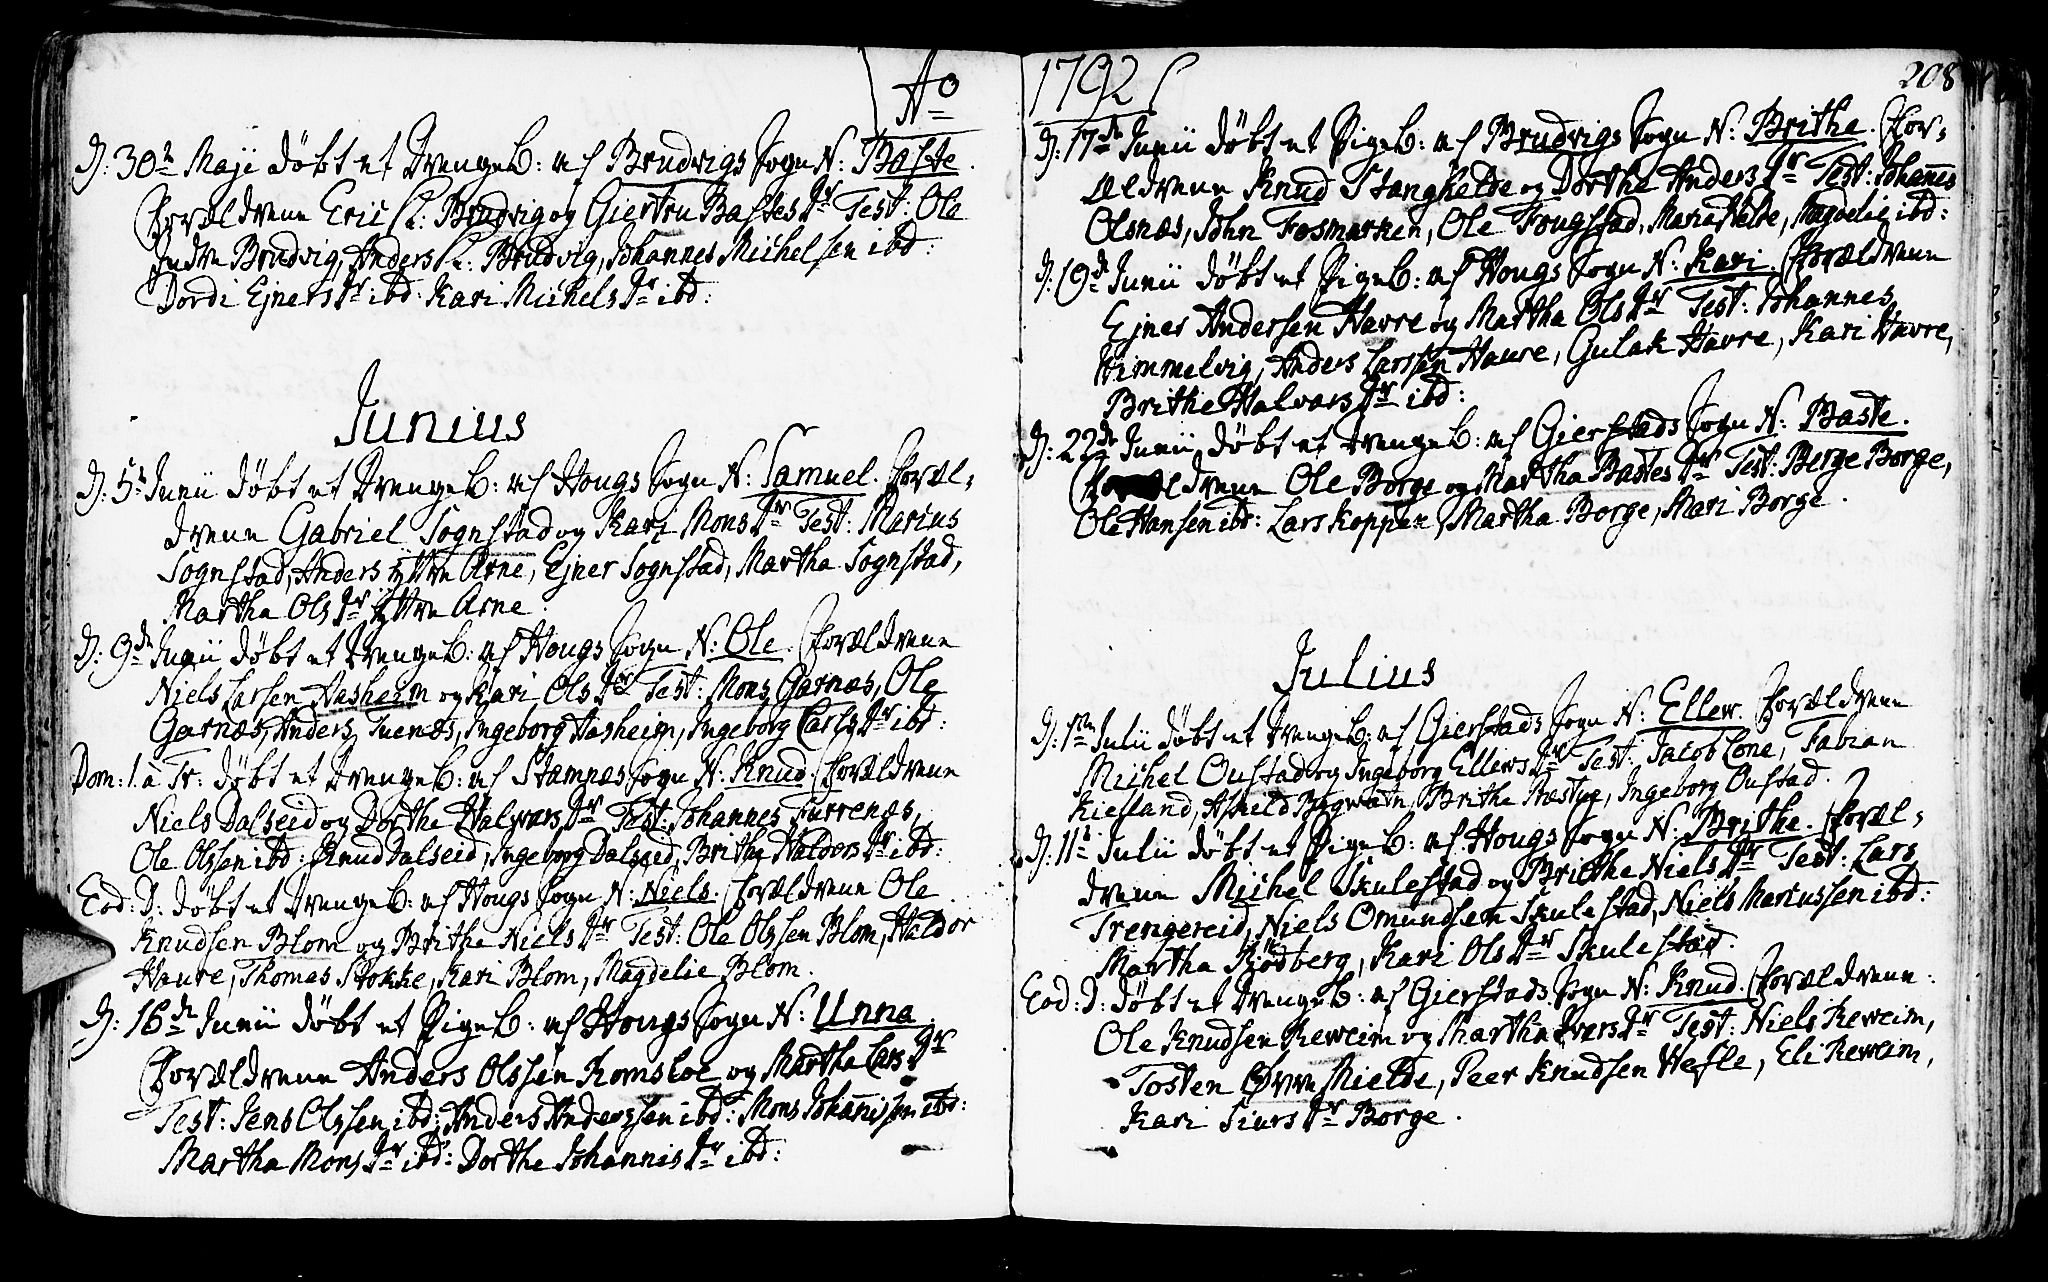 Ao
D: 30te Maji døbt et Drengeb: af Brudvigs Sogn N: Baste.
Forældrene Eric L: Brudvig og Giertru Bastes Dr Test: Ole
Indre Brudvig, Anders L: Brudvig, Johannes Michelsen ibd:
Dordi Ejners Dr ibd: Kari Michels Dr ibd:
Junius
D: 5t Junii døbt et Drengeb: af Hougs Sogn N: Samuel. Foræl-
drene Gabriel Sognstad og Kari Mons Dr Test: Marius
Sognstad, Anders Yttre Arne, Ejner Sognstad, Martha Sognstad,
Martha Ols Dr Yttre Arne.
D: 9de Junii døbt et Drengeb: af Hougs Sogn N: Ole. Forældrene
Niels Larsen Aasheim og Kari Ols Dr Test: Mons Garnæs, Ole
Garnæs, Anders Tuenæs, Ingeborg Aasheim, Ingeborg Carls Dr ibd:
Dom: 1. a Tr: døbt et Drengeb: af Stamnæs Sogn N: Knud. Forældrene
Niels Dalseid og Dorthe Halvars Dr Test: Johannes Furrenæs,
Ole Olssen ibd: Knud Dalseid, Ingeborg Dalseid, Brithe Haldors Dr ibd:
Eod: D: døbt et Drengeb: af Hougs Sogn N: Niels. Forældrene Ole
Knudsen Blom og Brithe Niels Dr Test: Ole Olssen Blom, Haldor
Havre, Thomas Stokke, Kari Blom, Magdelie Blom.
D: 16de Junii døbt et Pigeb: af Hougs Sogn N: Unna.
Forældrene Anders Olssen Romsloe og Martha Lars Dr
Test: Jens Olssen ibd: Anders Anderssen ibd: Mons Johannissen ibd:
Martha Mons Dr ibd: Dorthe Johannis Dr ibd:
1792
208
D: 17de Junii døbt et Pigeb: af Brudvigs Sogn N: Brithe. For-
ældrene Knud Stanghelde og Dorthe Anders Dr Test: Johannes
Olsnæs, John Fosmarken, Ole Fougstad, Maria Helde, Magdelie ibd:
D: 19de Junii døbt et Pigeb: af Hougs Sogn N: Kari. Forældrene
Ejner Andersen Havre og Martha Ols Dr Test: Johannes
Himmelvig, Anders Larssen Havre, Gulak Havre, Kari Havre,
Brithe Halvars Dr ibd:
D: 22de Junii døbt et Drengeb: af Gierstads Sogn N: Baste.
Forældrene Ole Borge og Martha Bastes Dr Test: Berge Borge,
Ole Hansen ibd: Lars Koppen, Martha Borge, Mari Borge.
Julius
D: 1ste Julii døbt et Drengeb: af Gierstads Sogn N: Ellew. Forældrene
Michel Oustad og Ingeborg Ellews Dr Test: Jacob Lone, Fabian
Kielland, Brithe Ingeborg Oustad.
D: 11te Julii døbt et Pigeb: af Hougs Sogn N: Brithe. Foræl-
drene Michel Skulestad og Brithe Niels Dr Test: Lars
Trengereid, Niels Omundsen Skulestad, Niels Mariussen ibd:
Martha Rödberg, Kari Ols Dr Skulestad.
Eod: D: døbt et Drengeb: af Gierstads Sogn N: Knud. Forældrene
Ole Knudsen Reweim og Martha Ivers Dr Test: Niels Reweim,
Tosten Øvre Mielde, Peer Knudsen Hesle, Eli Reweim,
Kari Siurs Dr Borge.